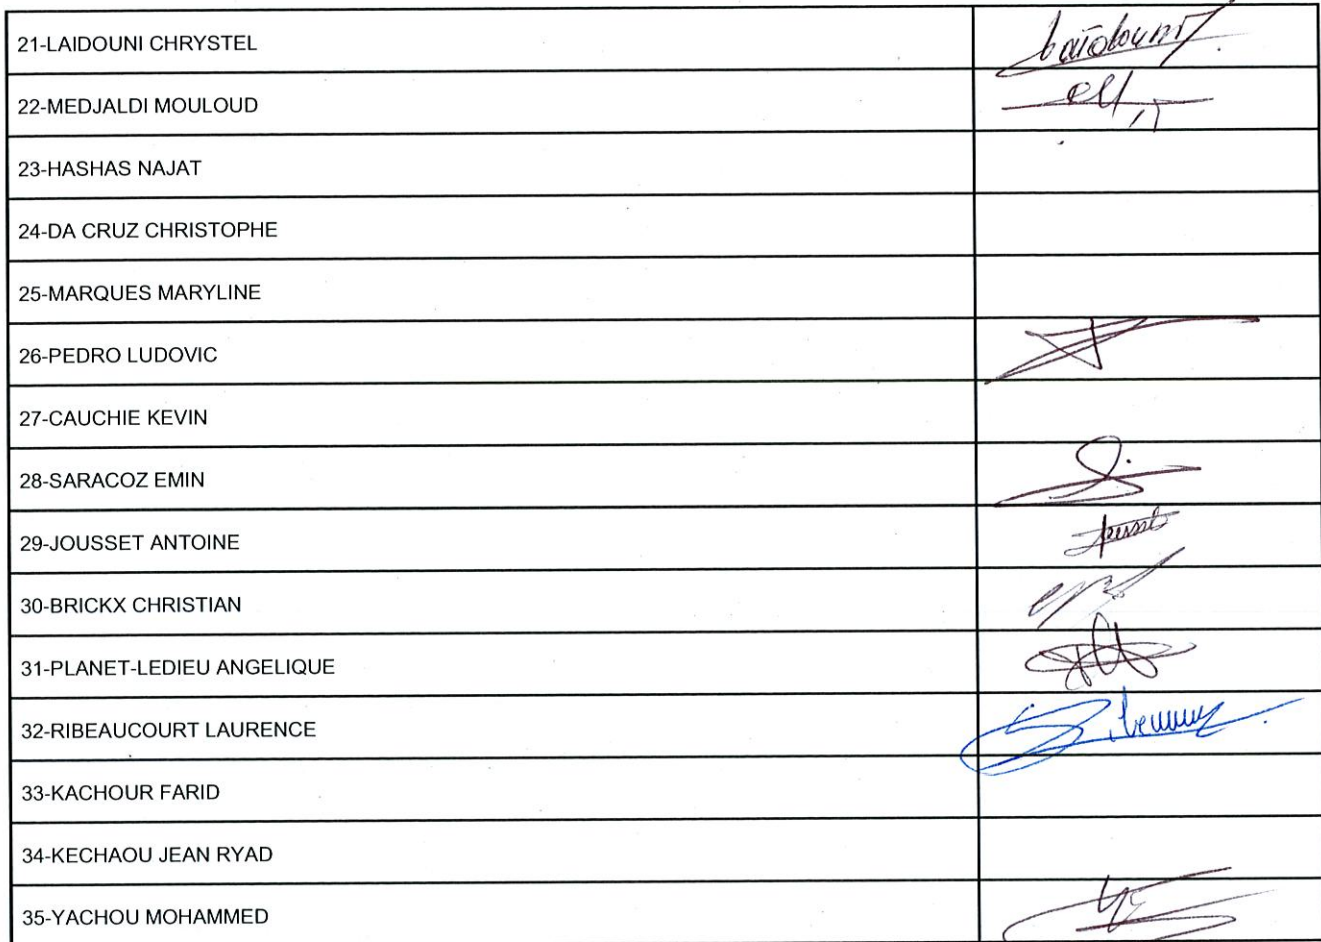 21-LAIDOUNI CHRYSTEL
Laidouni
22-MEDJALDI MOULOUD
23-HASHAS NAJAT
24-DA CRUZ CHRISTOPHE
25-MARQUES MARYLINE
26-PEDRO LUDOVIC
27-CAUCHIE KEVIN
28-SARACOZ EMIN
29-JOUSSET ANTOINE
30-BRICKX CHRISTIAN
31-PLANET-LEDIEU ANGELIQUE
32-RIBEAUCOURT LAURENCE
33-KACHOUR FARID
34-KECHAOU JEAN RYAD
35-YACHOU MOHAMMED